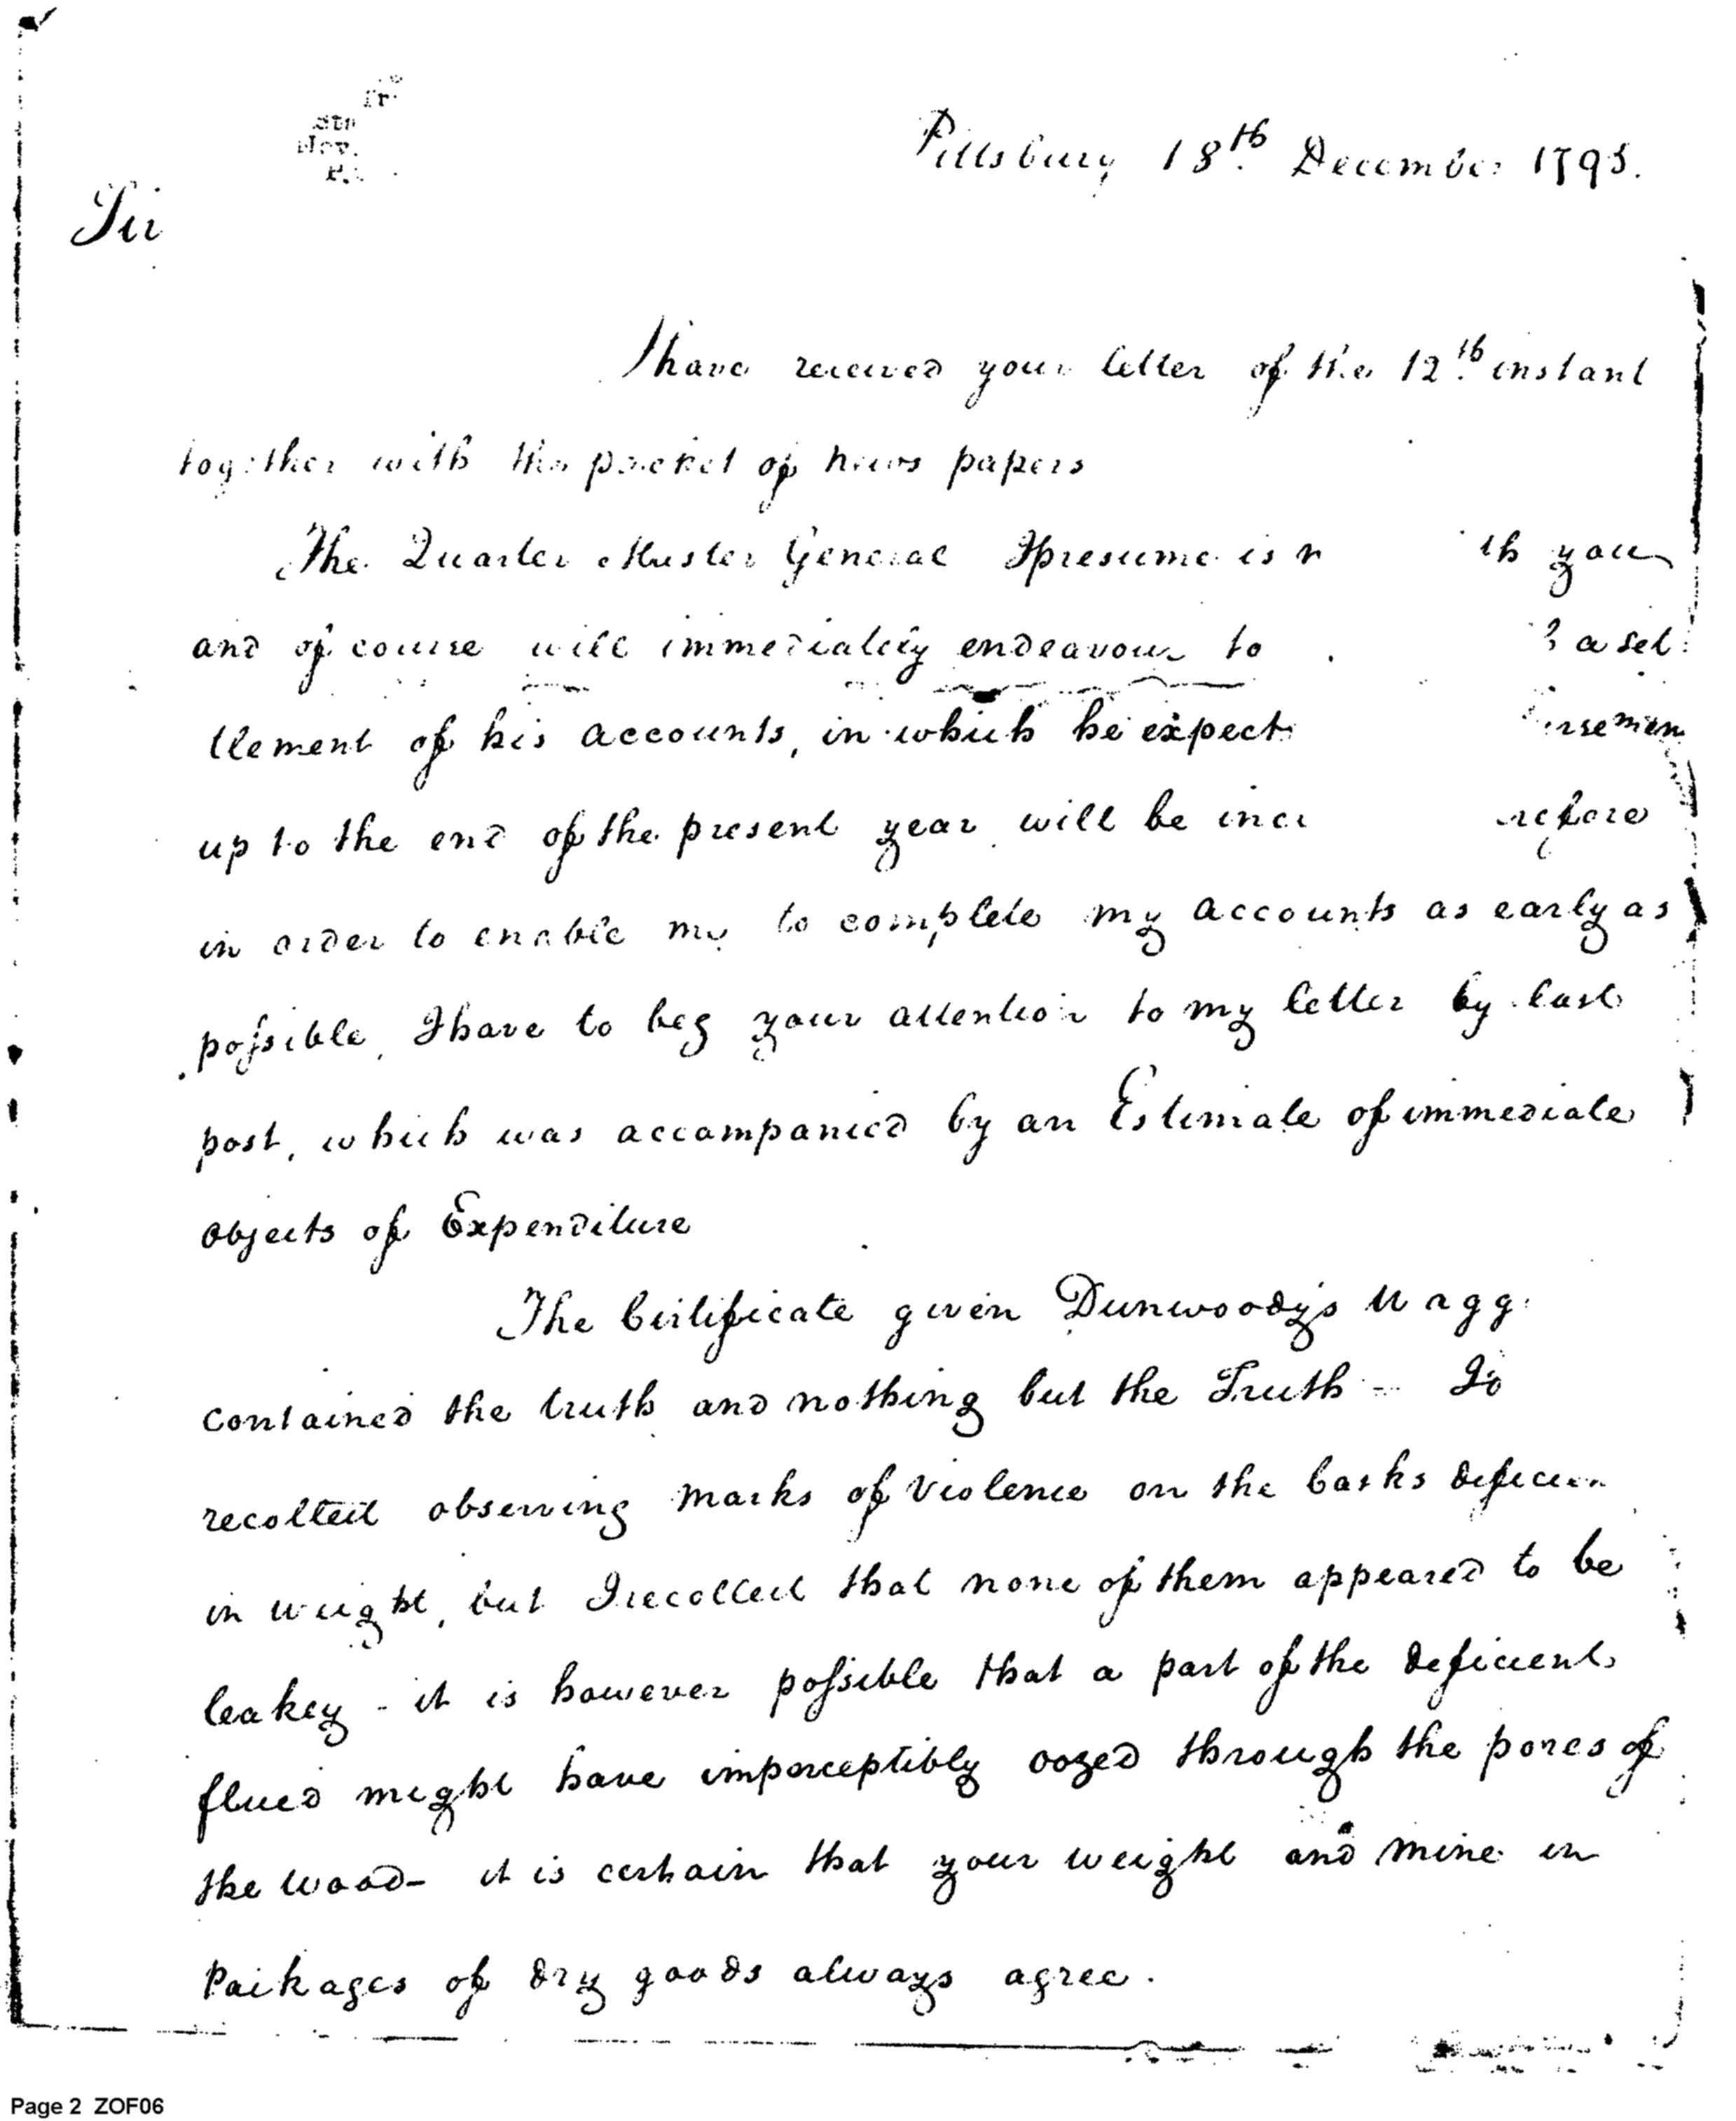 Pittsburg 18th December 1795.
Sir
I have received your letter of the 12th instant
together with the packet of news papers
The Quarter Master General I presume is n th you
and of course will immediately endeavour to a set
tlement of his accounts, in which he expects rsemen
up to the end of the present year will be inc refore
in order to enable me to complete my accounts as early as
possible, I have to beg your attention to my letter by last
post, which was accompanied by an Estimate of immediate
objects of Expenditure
The Certificate given Dunwoody's Wagg
contained the truth and nothing but the Truth -
recollect observing marks of Violence on the Casks deficien
in weight, but I recollect that none of them appeared to be
leakey - it is however possible that a part of the deficient
flued might have imperceptibly oozed through the pores of
the wood - it is certain that your weight and mine in
Packages of dry goods always agree.
Page 2 ZOF06